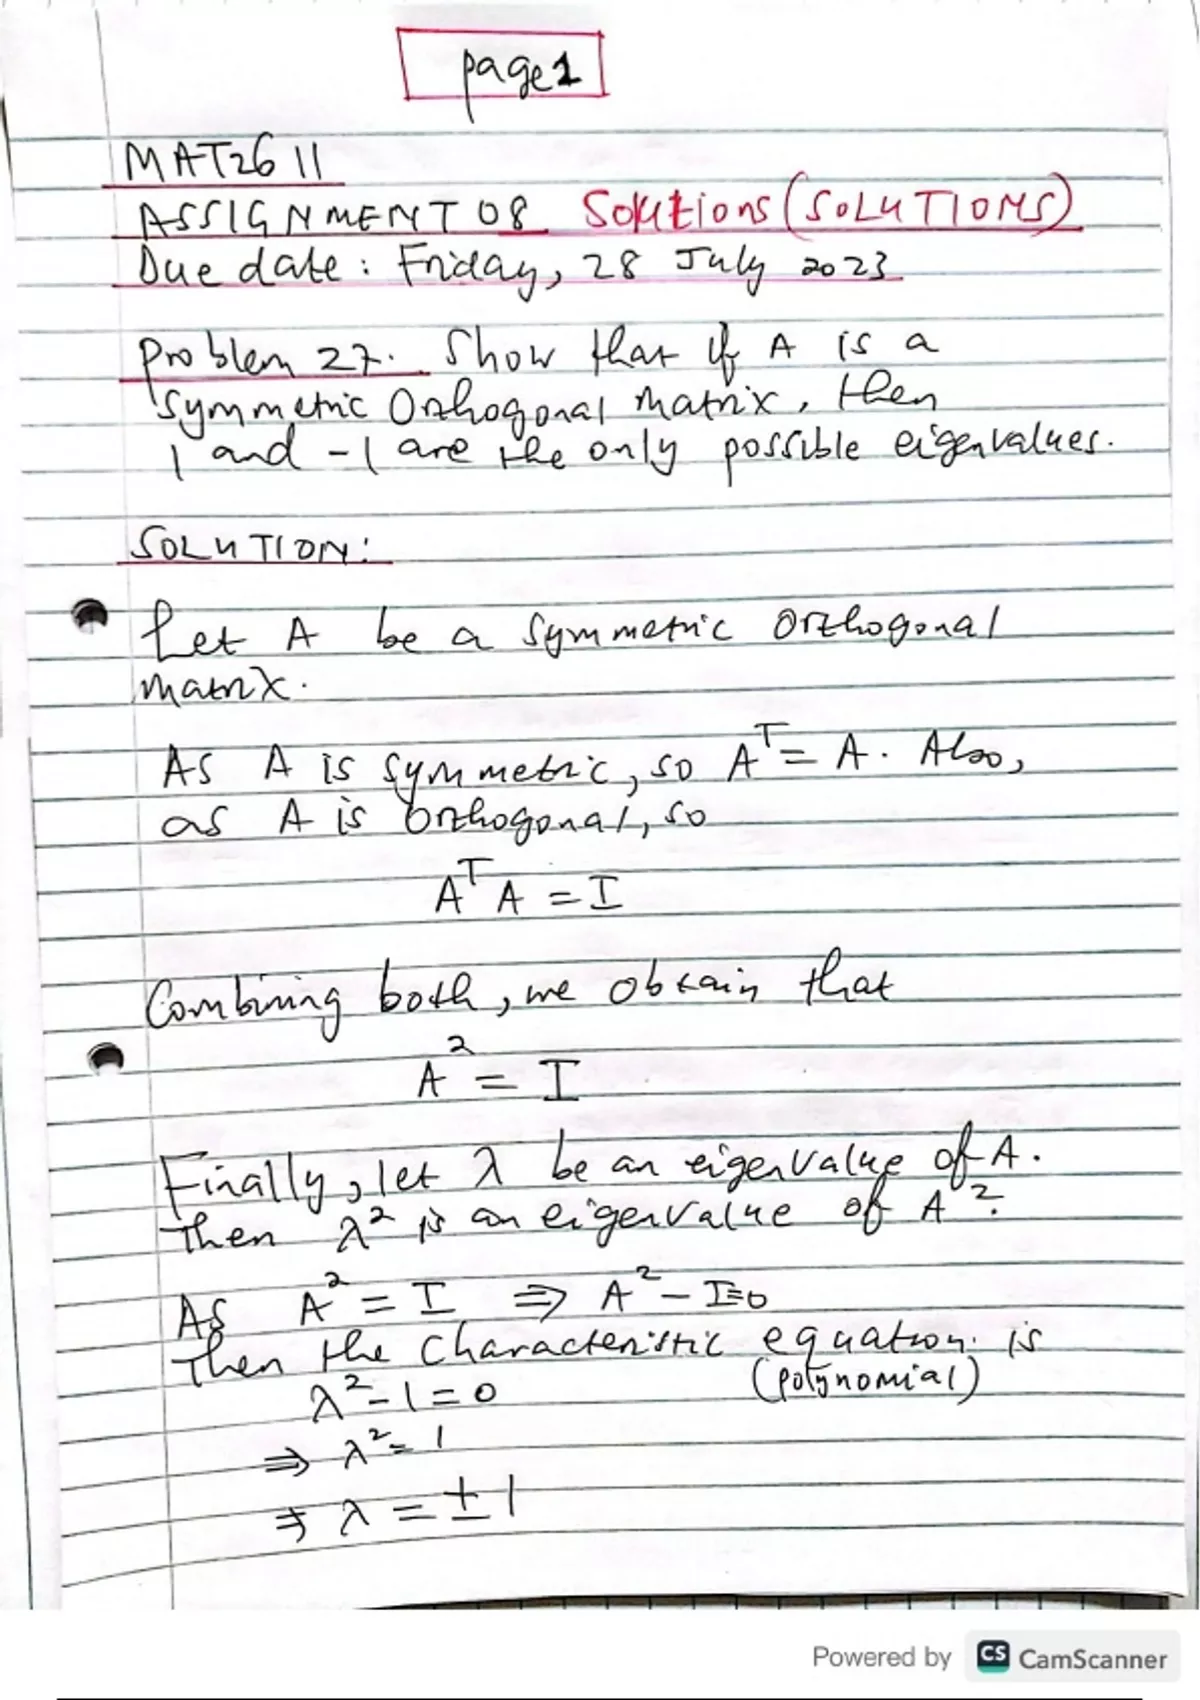 page 1
MAT2611
ASSIGNMENT 08 Solutions (SOLUTIONS)
Due date: Friday, 28 July 2023
Problem 27. Show that if A is a
symmetric Orthogonal matrix, then
1 and -1 are the only possible eigenvalues.
SOLUTION:
Let A be a symmetric Orthogonal
matrix.
As A is symmetric, so Aᵀ = A. Also,
as A is orthogonal, so
AᵀA = I
Combining both, we obtain that
A² = I
Finally, let λ be an eigenvalue of A.
Then λ² is an eigenvalue of A².
As A² = I ⇒ A² - I = 0
Then the characteristic equation is
(polynomial)
λ² - 1 = 0
⇒ λ² = 1
⇒ λ = ± 1
Powered by CS CamScanner